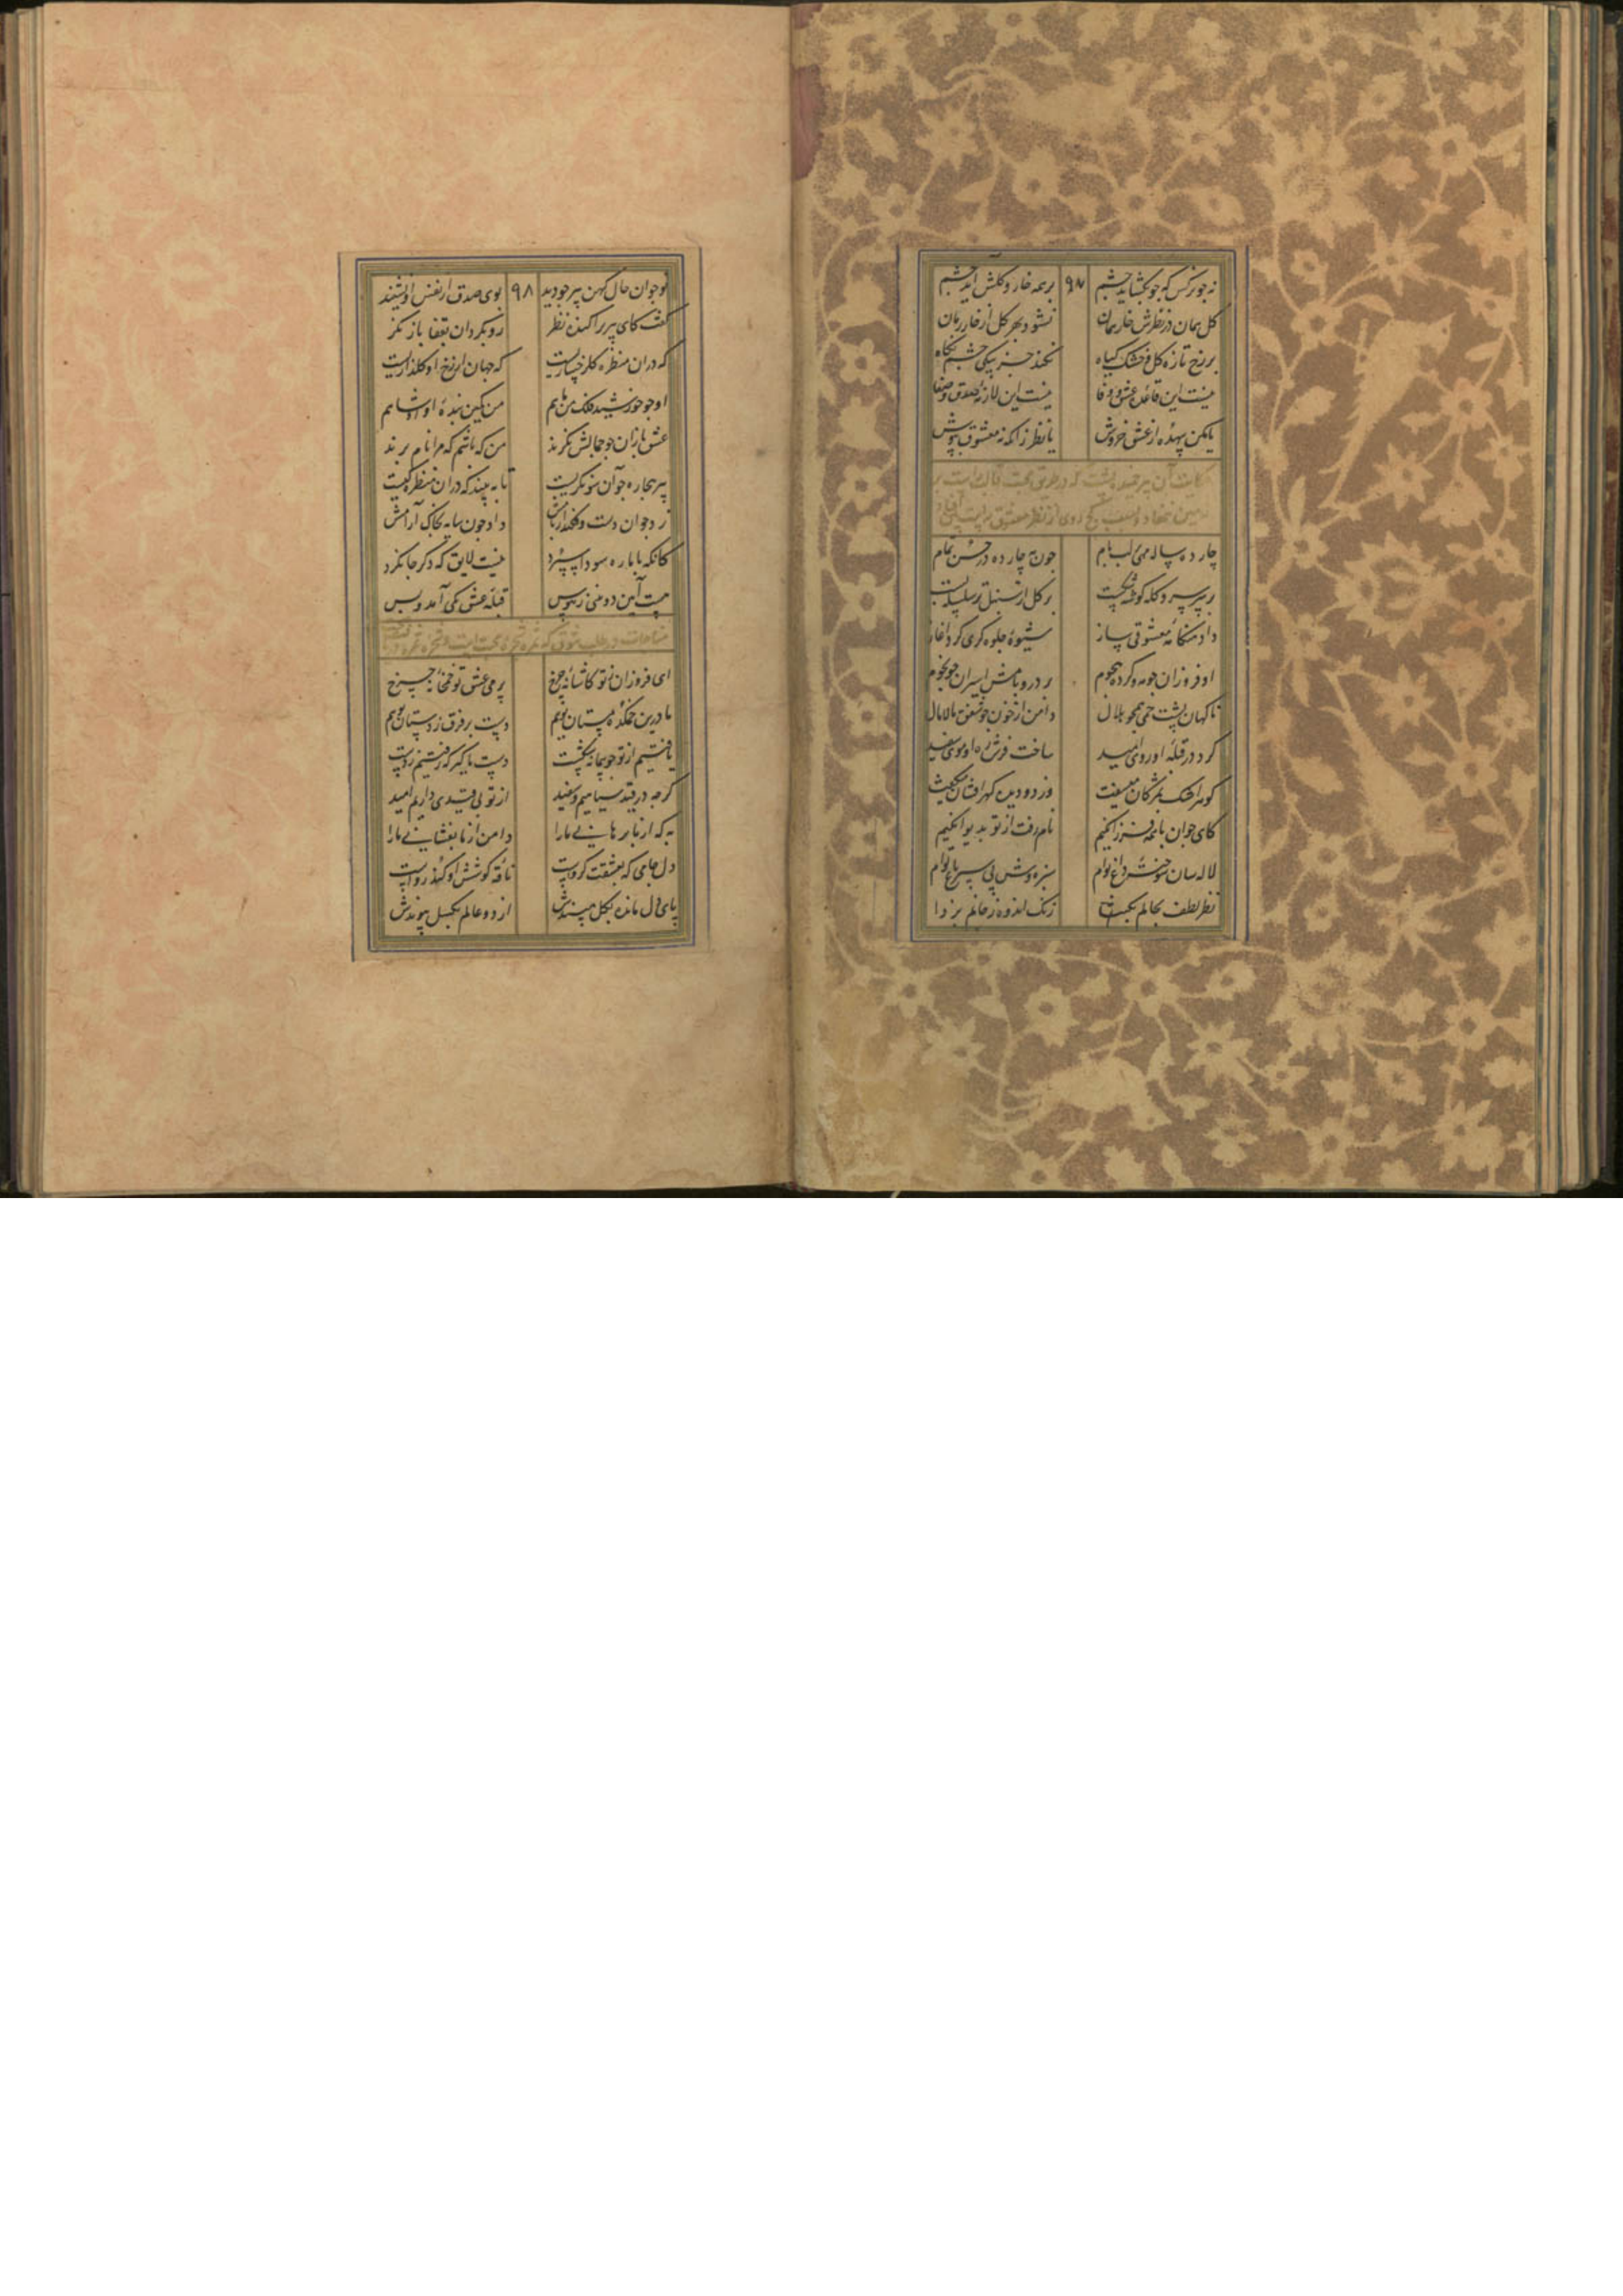 نه چو نرگس که چو بگشاید چشم ۹۸ بر همه خار و گلش آید چشم
گل همان در نظرش خار همان نشود بهر گل از خار رمان
بر رخ تازه گل و خشک گیاه نکند جز بیکی چشم نگاه
نیست این قاعده عشق و وفا نیست این لازمه صدق و صفا
یا مکن بیهده از عشق خروش یا نظر زانکه نه معشوق بپوش
حکایت آن پیر
چارده ساله مهی بر لب بام چون مه چارده در حسن تمام
بر سر سرو کله گوشه شکست بر گل از سنبل تر سلسله بست
داد هنگامه معشوقی ساز شیوه جلوه گری کرد آغاز
او فروزان چو مه و کرده هجوم بر در و بامش اسیران چو نجوم
ناگهان پشت خمی همچو هلال دامن از خون چو شفق مالامال
کرد در قبله او روی امید ساخت فرش ره او موی سفید
گوهر اشک بمژگان میسفت وز دو دیده گهر افشان میگفت
کای جوان با همه فرزانگیم نام رفت از تو بدیوانگیم
لاله سان سوخته داغ توام سبزه وش پی سپر باغ توام
نظر لطف بحالم بگشا زنگ اندوه ز جانم بزدا
نوجوان حال کهن پیر چو دید ۹۸ بوی صدق از نفس او نشنید
گفت کای پیر پراکنده نظر رو بگردان بقفا باز نگر
که در آن منظره گلرخساریست که جهان از رخ او گلزاریست
او چو خورشید فلک من ماهم من کمین بنده او او شاهم
عشق بازان چو جمالش نگرند من که باشم که مرا نام برند
پیر بیچاره چو آن سو نگریست تا ببیند که در آن منظره کیست
زد جوان دست و فکند از بامش داد چون سایه بخاک آرامش
کانکه با ما ره سودا سپرد نیست لایق که دگر جا نگرد
هست آیین دو بینی ز هوس قبله عشق یکی آمد و بس
مناجات در طلب
ای فروزان ز تو کاشانه چرخ پر می عشق تو خمخانه چرخ
ما درین خمکده مستان توییم دست بر فرق ز دستان توییم
یافتیم از تو چو پیمانه نخست دست ما گیر که رفتیم ز دست
گرچه در قید سیاهیم و سفید از تو بی قیدی داریم امید
به که از ما برهانی ما را دامن از ما بفشانی ما را
دل جامی که بعشقت گرو است ناقه کوشش او کند رو است
پای دل مانده بگل مپسندش از دو عالم بگسل پیوندش